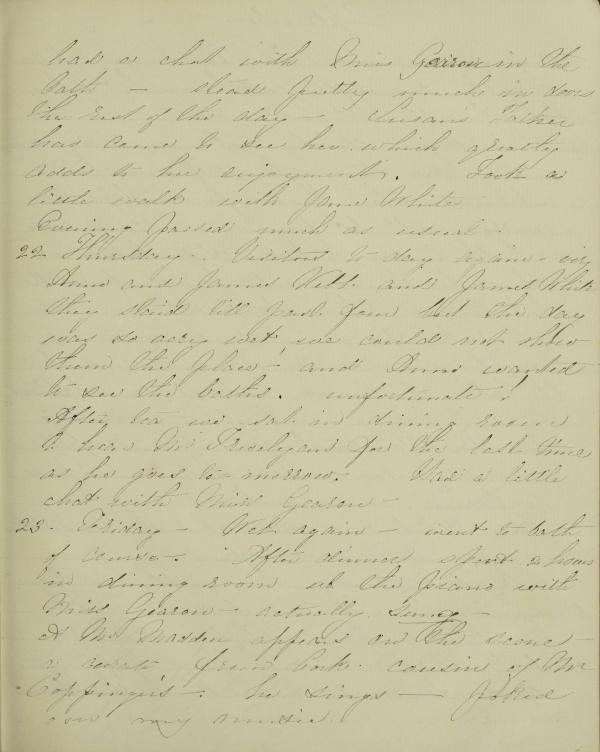 had a chat with Miss Gearon in the
bath — staid pretty much in doors
the rest of the day — Susan's Father
has come to see her. which greatly
adds to her enjoyment. Took a
little walk with Jane White
Evening passed much as usual —
22 Thursday — Visitors to day again — viz
Anne and James Webb and James White
they staid till past four but the day
was so very wet, we could not show
them the place — and Anne wanted
to see the baths. unfortunate!
After tea we sat in dining room
to hear Mr Trevelyan for the last time
as he goes to-morrow. Had a little
chat with Miss Gearon —
23 — Friday — Wet again — went to bath
of course — After dinner spent 2 hours
in dining room at the piano with
Miss Gearon — actually sung —
A Mr Madden appears on the scene —
a from Cork. cousin of Mr
Coppinger's — he sings — Joked
over my music